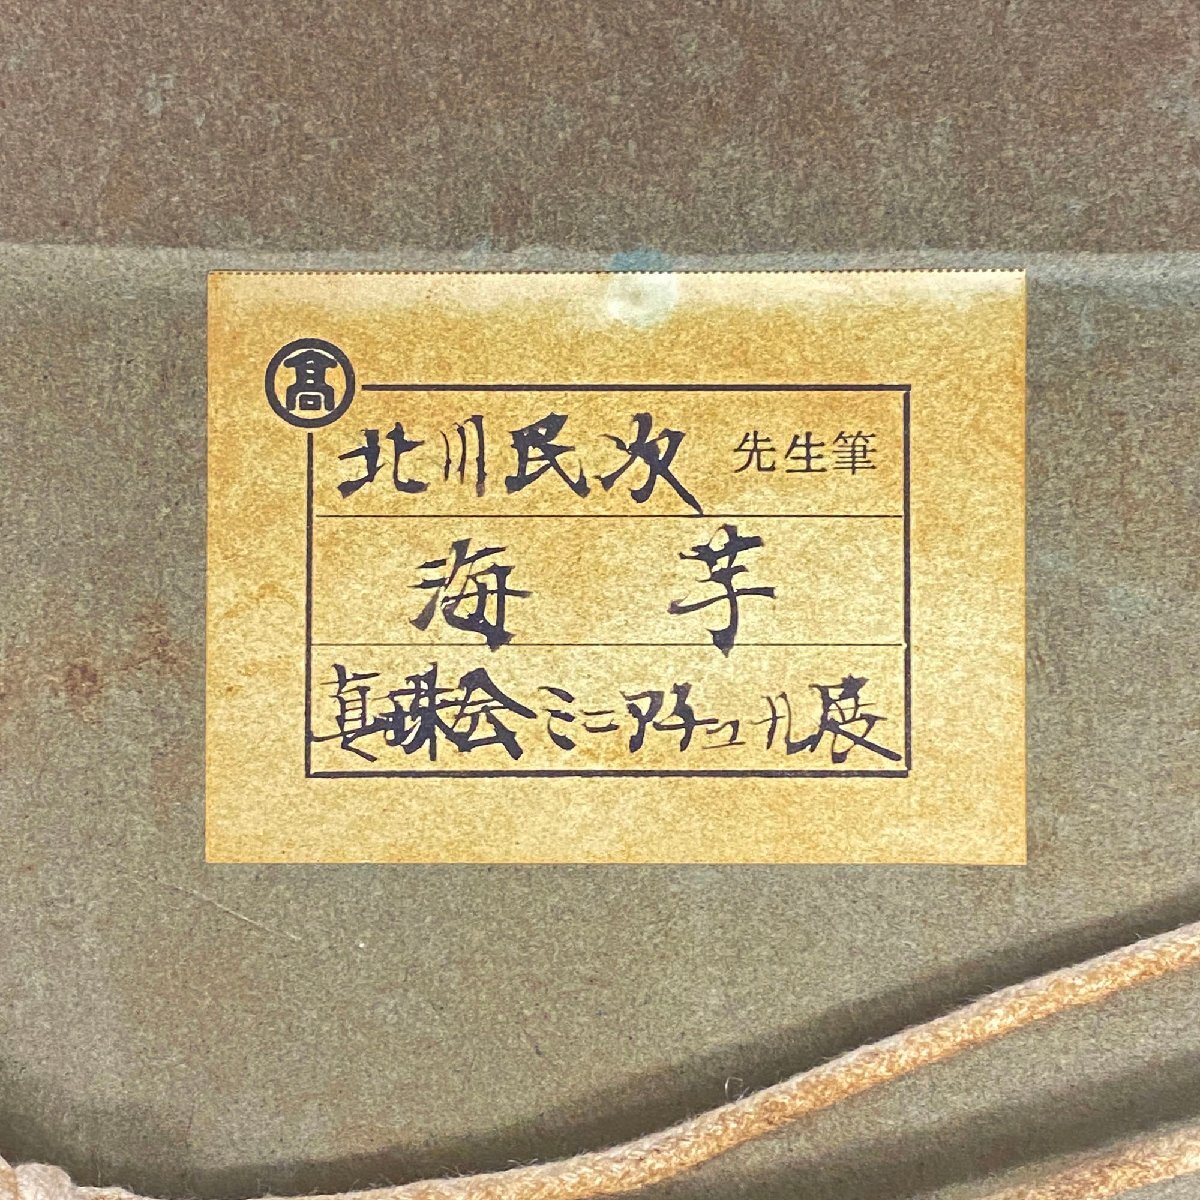 髙
北川民次 先生筆
海芋
真珠会ミニアチュール展